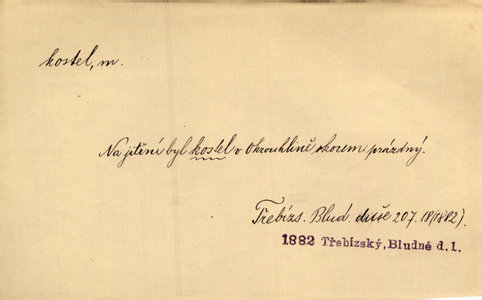 kostel, m.
Na jitřní byl kostel v Okrouhlině skorem prázdný.
Třebízs. Blud. duše 207. 18(1882).
1882 Třebízský, Bludné d. 1.